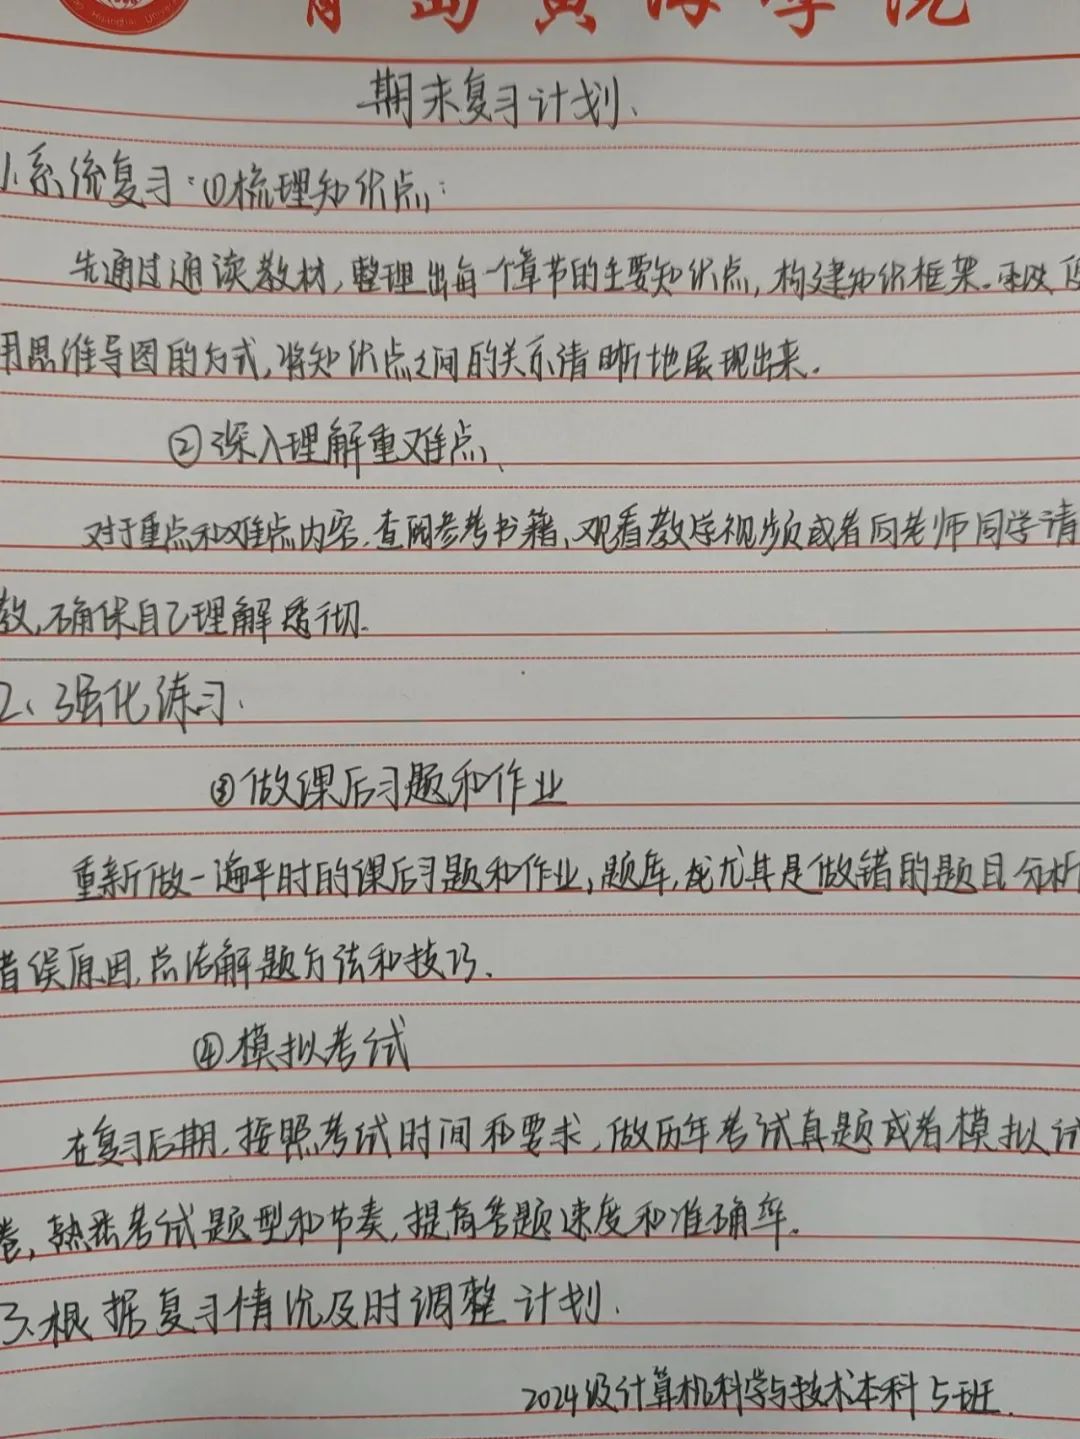 青岛黄海学院
期末复习计划.
1.系统复习:①梳理知识点:
先通过通读教材,整理出每一个章节的主要知识点,构建知识框架.
用思维导图的方式,将知识点之间的关系清晰地展现出来.
②深入理解重难点、
对于重点和难点内容.查阅参考书籍、观看教学视频或者向老师同学请
教,确保自己理解透彻.
2、强化练习.
③做课后习题和作业
重新做一遍平时的课后习题和作业,题库,尤其是做错的题目分析
错误原因,总结解题方法和技巧.
④模拟考试
在复习后期,按照考试时间和要求,做历年考试真题或者模拟试
卷,熟悉考试题型和节奏,提高答题速度和准确率.
3.根据复习情况及时调整计划.
2024级计算机科学与技术本科5班.